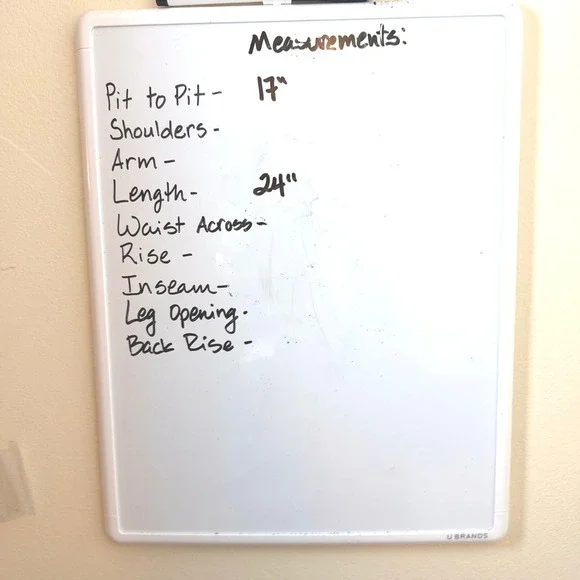 Measurements:
Pit to Pit - 17"
Shoulders -
Arm -
Length - 24"
Waist Across -
Rise -
Inseam -
Leg Opening -
Back Rise -
U BRANDS